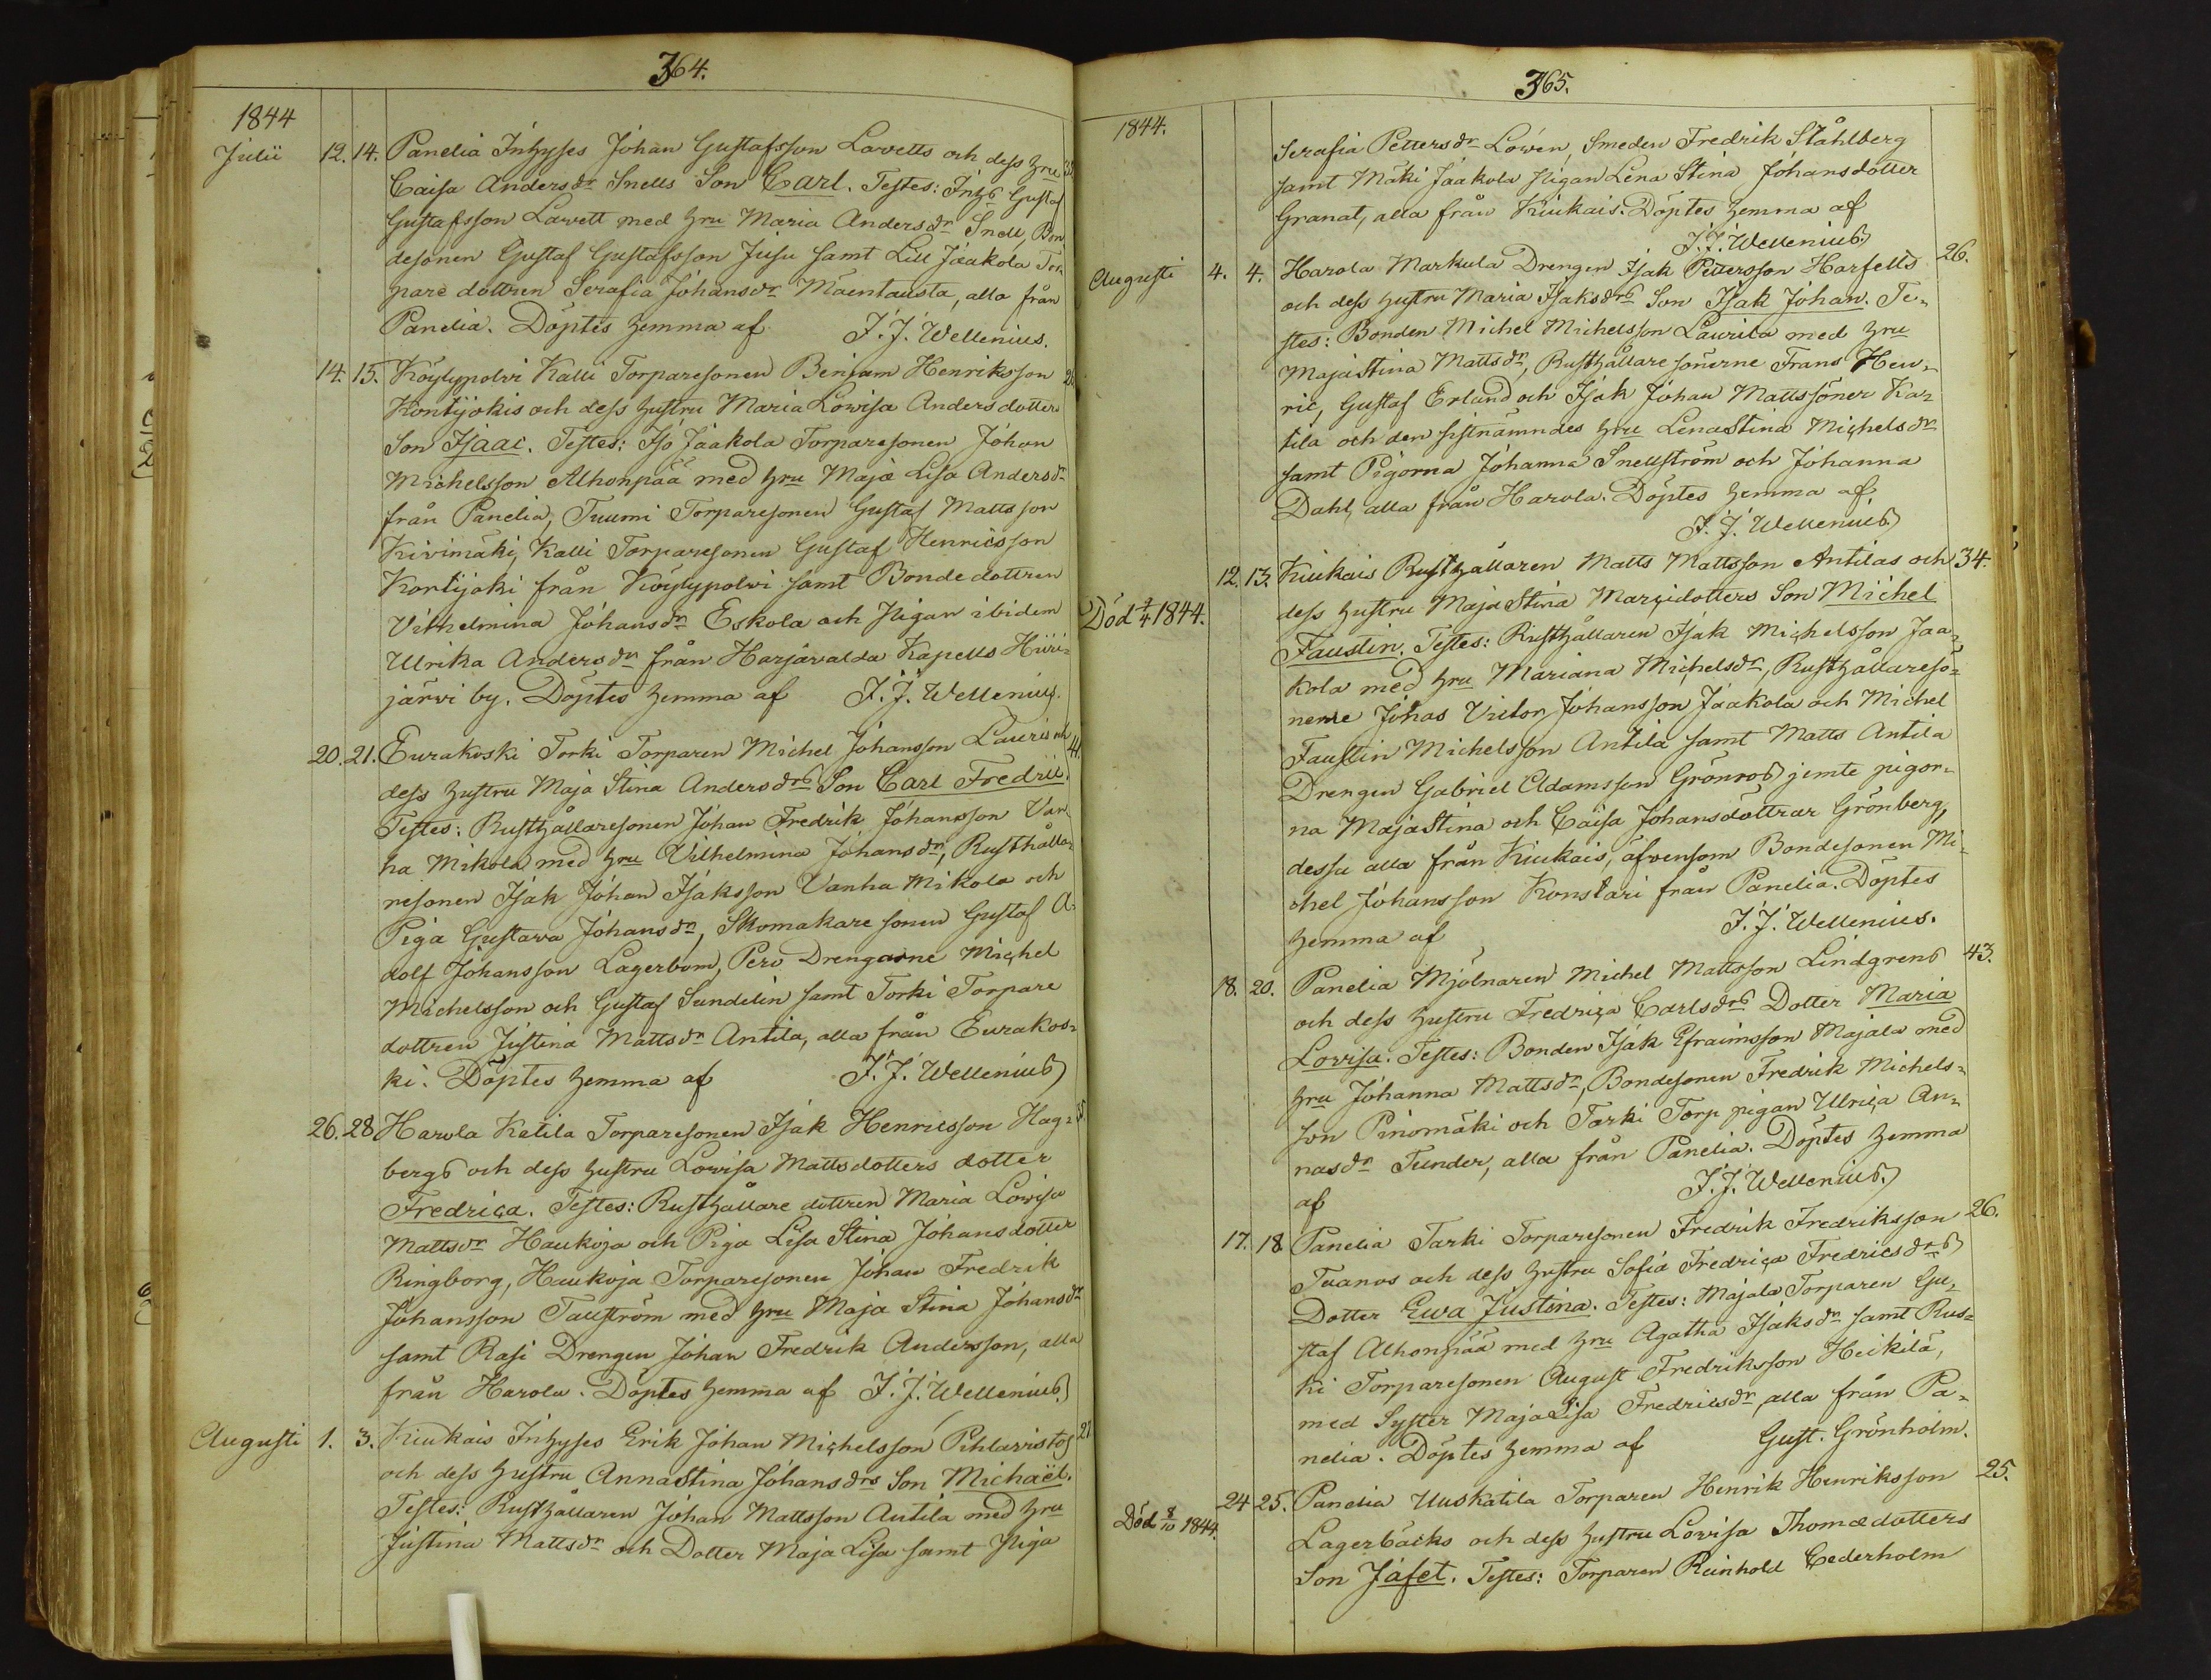 364.
1844
Julii 12. 14. Panelia Inhyses Johan Gustafsson Lavetts och dess hru
Caisa Andersdr Snells Son Carl. Testes: Inhs Gustaf
Gustafsson Lawett med hru Maria Andersdr Snell, Bon
desonen Gustaf Gustafsson Jusu samt Lill Jaakola Tor
pare dottren Serafia Johansdr Mäentausta, alla från
Panelia. Döptes hemma af J. J. Wellenius.
14. 15. Köylypolvi Kalli Torparesonen Benjam Henriksson
Kontijokis och dess hustru Maria Lowisa Andersdotters
Son Isaac. Testes: Iso Jaakola Torparesonen Johan
Michelsson Alhonpää med hru Maja Lisa Andersdr
från Panelia, Tuumi Torparesonen Gustaf Mattsson
Kivimäki, Kalli Torparesonen Gustaf Henricsson
Kontijoki från Köylypolvi samt Bonde dottren
Vilhelmina Johansdr Eskola och Pigan ibidem
Ulrika Andersdr från Harjavalda Kapells Hiiri-
järvi by. Döptes hemma af J. J. Wellenius.
20. 21. Eurakoski Torki Torparen Michel Johansson Lauris och 41.
dess hustru Maja Stina Andersdrs Son Carl Fredric.
Testes: Rusthållaresonen Johan Fredrik Johansson Van
ha Mikola med hru Vilhelmina Johansdr, Rusthålla-
resonen Isak Johan Isaksson Vanha Mikola och
Piga Gustava Johansdr, Skomakare sonen Gustaf A-
dolf Johansson Lagerbom, Pero Drengarne Michel
Michelsson och Gustaf Sundelin samt Torki Torpare
dottren Justina Mattsdr Antila, alla från Eurakos-
ki. Döptes hemma af J. J. Wellenius
26. 28 Harola Katila Torparesonen Isak Henricsson Hag-
bergs och dess hustru Lovisa Mattsdotters dotter
Fredrica. Testes: Rusthållare dottren Maria Lovisa
Mattsdr Haukoja och Piga Lisa Stina Johansdotter
Ringborg, Haukoja Torparesonen Johan Fredrik
Johansson Tallström med hru Maja Stina Johansdr
samt Rasi Drengen Johan Fredrik Andersson, alla
från Harola. Döptes hemma af J. J. Wellenius.
Augusti 1. 3. Kiukais Inhyses Erik Johan Michelsson Pihlavistos
och dess hustru Anna Stina Johansdrs Son Michaël.
Testes: Rusthållaren Johan Mattsson Antila med hru
Justina Mattsdr och Dotter Maja Lisa samt Piga
365.
1844.
Serafia Pettersdr Lowén, Smeden Fredrik Stählberg
samt Mäki Jaakola Pigan Lena Stina Johansdotter
Granat, alla från Kiukais. Döptes hemma af
J. J. Wellenius
Augusti 4. 4. Harola Markula Drengen Isak Pettersson Harfells 26.
och dess hustru Maria Isaksdrs Son Isak Johan. Te-
stes: Bonden Michel Michelsson Laurila med hru
Maja Stina Mattsdr, Rusthållare sönerne Frans Hen-
ric, Gustaf Erland och Isak Johan Mattssöner Ka-
tila och den sistnämndes hru Lena Stina Michelsdr
samt Pigorna Johanna Snellström och Johanna
Dahl, alla från Harola. Döptes hemma af
J. J. Wellenius
12. 13. Kiukais Rusthållaren Matts Mattsson Antilas och 34.
Död 7/4 1844. dess hustru Maja Stina Marcidotters Son Michel
Faustin. Testes: Rusthållaren Isak Michelsson Jaa-
kola med hru Mariana Michelsdr, Rusthållaresö-
nerne Johas Victor Johansson Jaakola och Michel
Faustin Michelsson Antila samt Matts Antila
Drengen Gabriel Adamsson Grönros jemte pigor-
na Maja Stina och Caisa Johansdöttrar Grönberg,
dessa alla från Kiukais, äfvensom Bondesonen Mi-
chel Johansson Konstari från Panelia. Döptes
hemma af J. J. Wellenius.
18. 20. Panelia Mjölnaren Michel Mattsson Lindgrens 43.
och dess hustru Fredrica Carlsdrs Dotter Maria
Lovisa. Testes: Bonden Isak Efraimsson Majala med
hru Johanna Mattsdr, Bondesonen Fredrik Michels-
son Pinomäki och Tarki Torp pigan Ulrica An-
nasdr Tunder, alla från Panelia. Döptes hemma
af J. J. Wellenius.
17. 18 Panelia Tarki Torparesonen Fredrik Fredriksson 26.
Tuanos och dess hustru Sofia Fredrica Fredricsdrs
Dotter Ewa Justina. Testes: Majala Torparen Gu-
staf Alhonpää med hru Agatha Isaksdr samt Rus-
ki Torparesonen August Fredriksson Heikilä,
med Syster Maja Lisa Fredricsdr, alla från Pa-
nelia. Döptes hemma af Gust. Grönholm.
24 25. Panelia Uuskatila Torparen Henrik Henriksson 25.
Död 8/10 1844. Lagerbäcks och dess hustru Lovisa Thomædotters
Son Jafet. Testes: Torparen Reinhold Cederholm